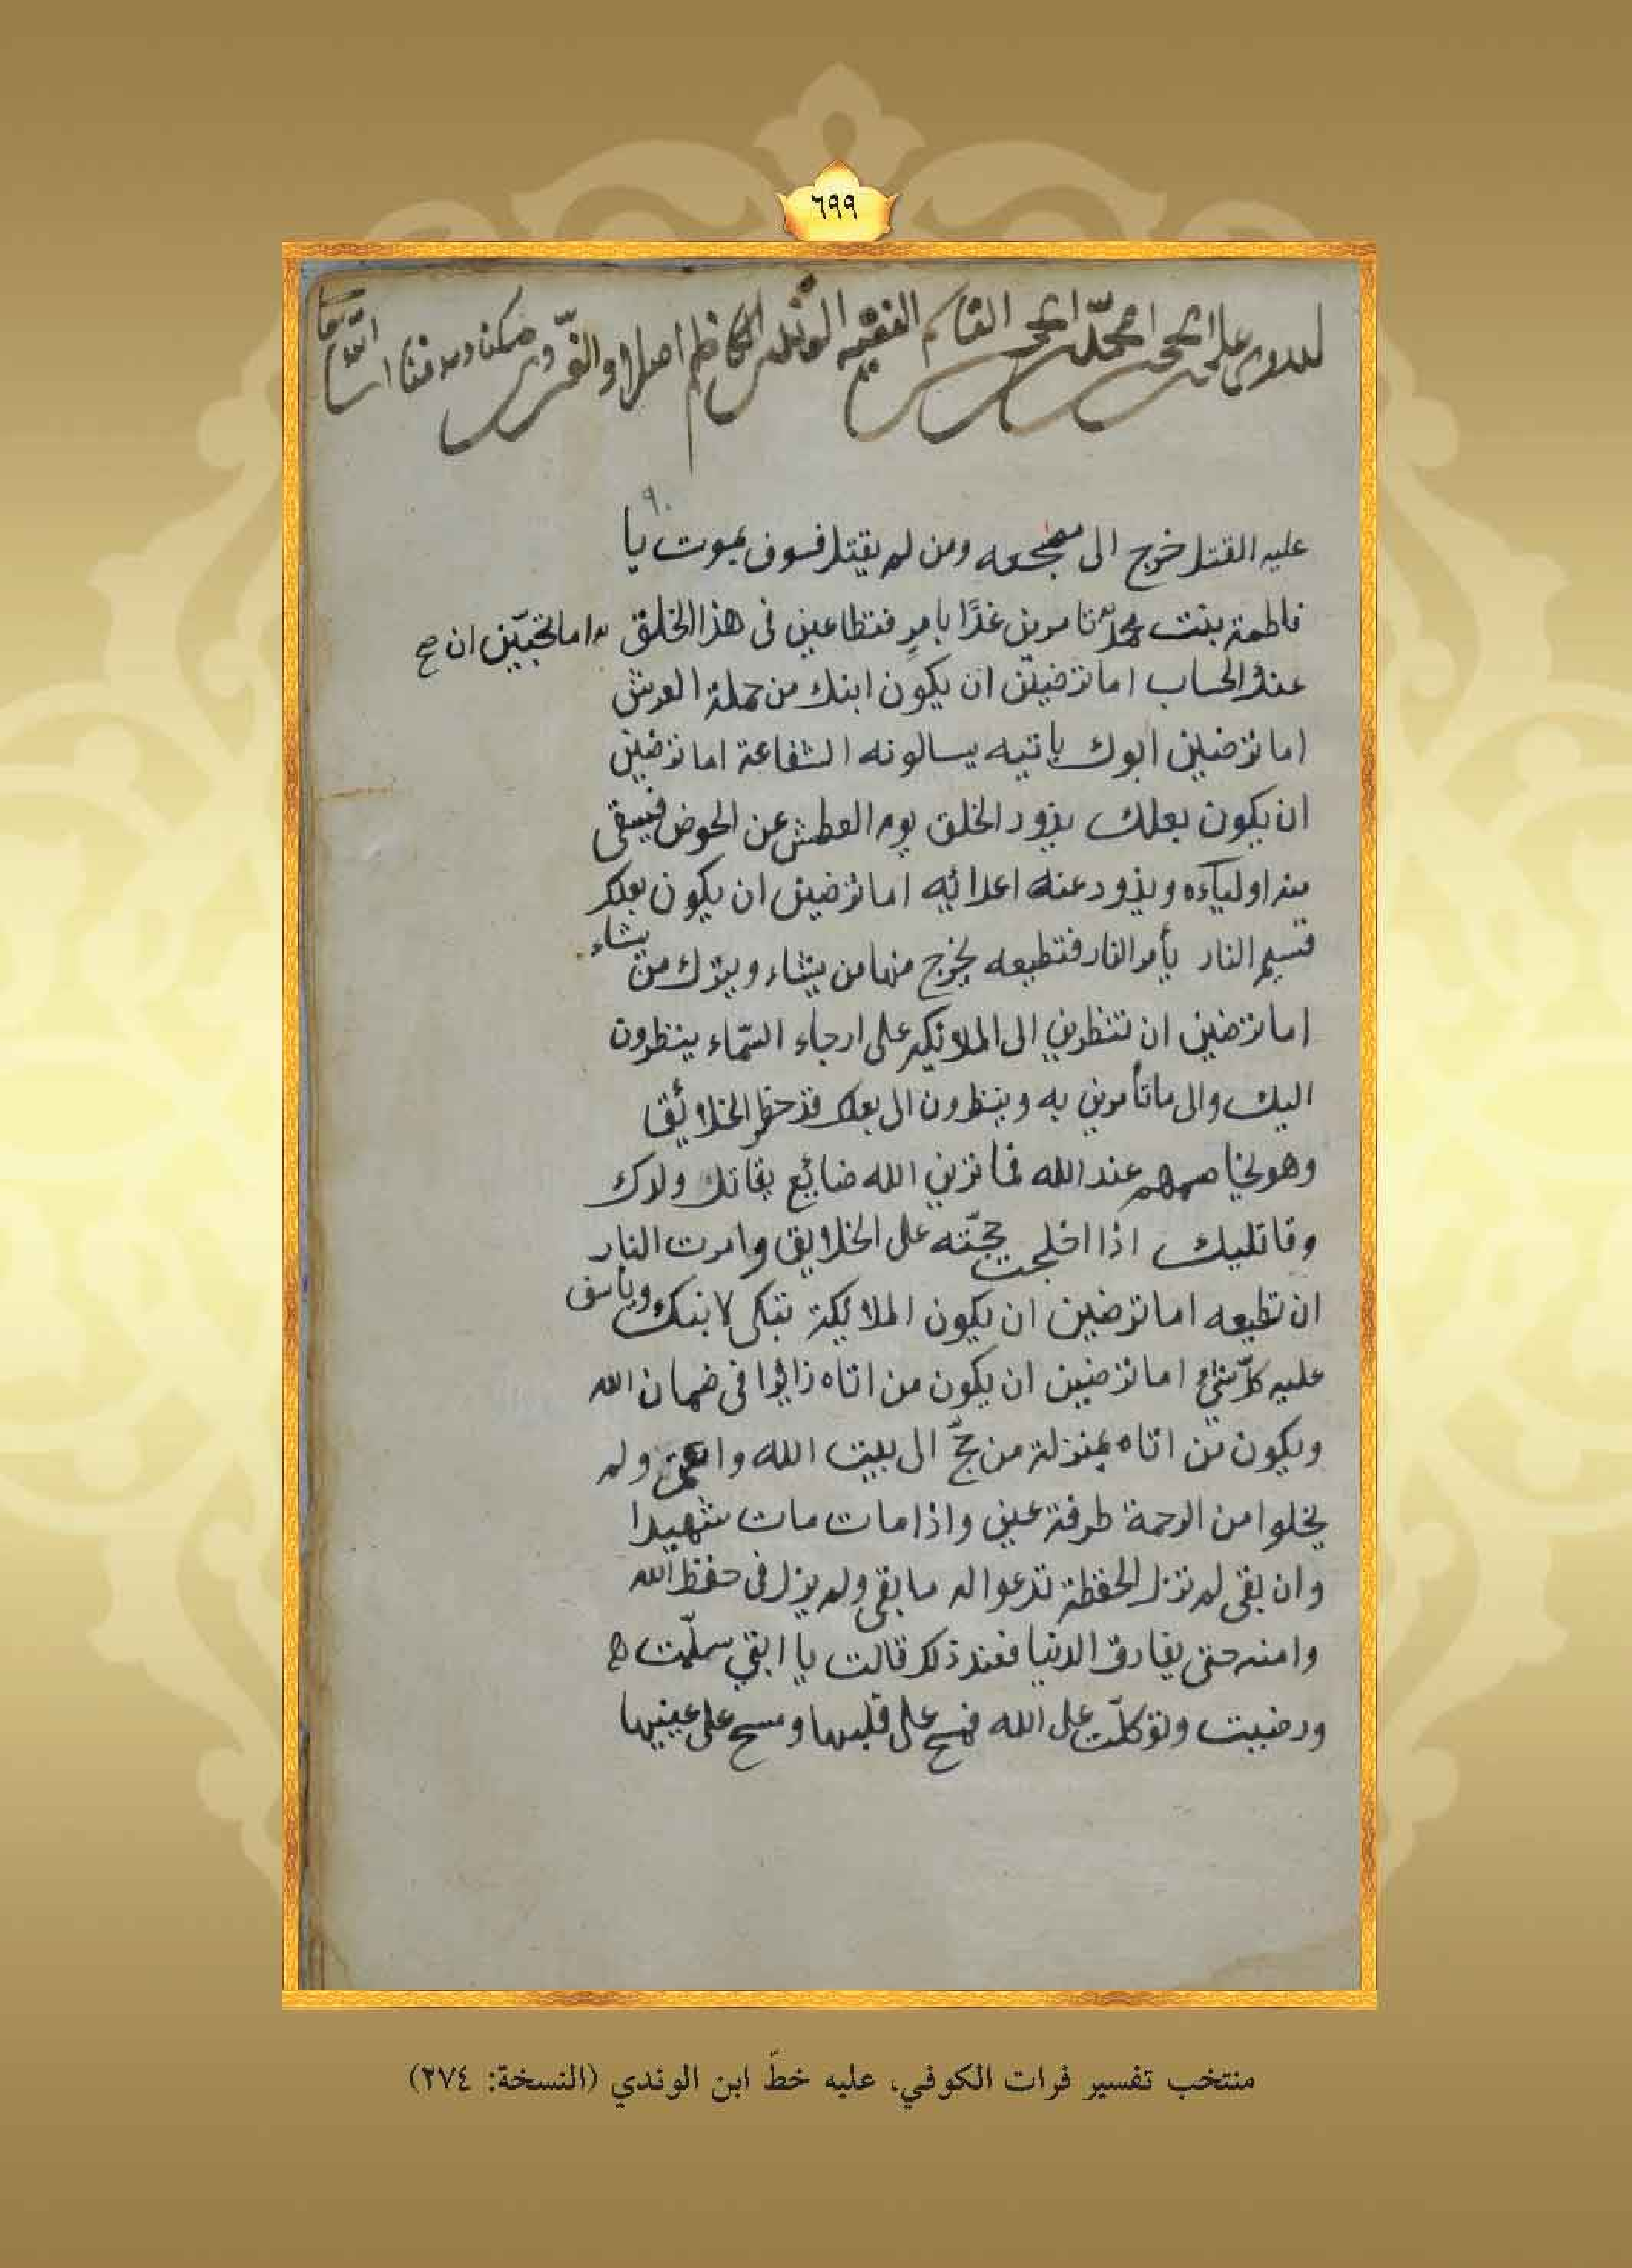 ٦٩٩
علي الحسيني القاسم الفقيه الوندي الكاظمي اصلا والغروي مسكنا ومدفنا ان شاء الله تعالى
٩٠
عليه القتل خرج الى مضجعه ومن لم يقتل فسوف يموت يا
فاطمة بنت محمد تامرين غدًا بامرٍ فتطاعين فى هذا الخلق اما تحبّين ان صح
عند الحساب اما ترضين ان يكون ابنك من حملة العرش
اما ترضين ابوك ياتيه يسالونه الشفاعة اما ترضين
ان يكون بعلك يذود الخلق يوم العطش عن الحوض فيسقى
منه اولياءه ويذود عنه اعدائه اما ترضين ان يكون بعلك
قسيم النار يأمر النار فتطيعه يخرج منها من يشاء ويترك من يشاء
اما ترضين ان تنظرين الى الملائكة على ارجاء السّماء ينظرون
اليك والى ما تأمرين به وينظرون الى بعلك قد حضر الخلائق
وهو يخاصمهم عند الله فما ترين الله صانع بقاتل ولدك
وقاتليك اذا افلجت حجّته على الخلايق وامرت النار
ان تطيعه اما ترضين ان يكون الملائكة تبكى لابنك وياسف
عليه كلّ شىء اما ترضين ان يكون من اتاه زائرا فى ضمان الله
ويكون من اتاه بمنزلة من حجّ الى بيت الله واعتمر ولم
يخلوا من الرحمة طرفة عين واذا مات مات شهيدا
وان بقى لم تزل الحفظة تدعوا له ما بقى ولم يزل فى حفظ الله
وامنه حتى يفارق الدنيا فعند ذلك قالت يا ابتي سلّمت
ورضيت وتوكلّت على الله فمسح على قلبها ومسح على عينيها
منتخب تفسير فرات الكوفي، عليه خطّ ابن الوندي (النسخة: ٢٧٤)